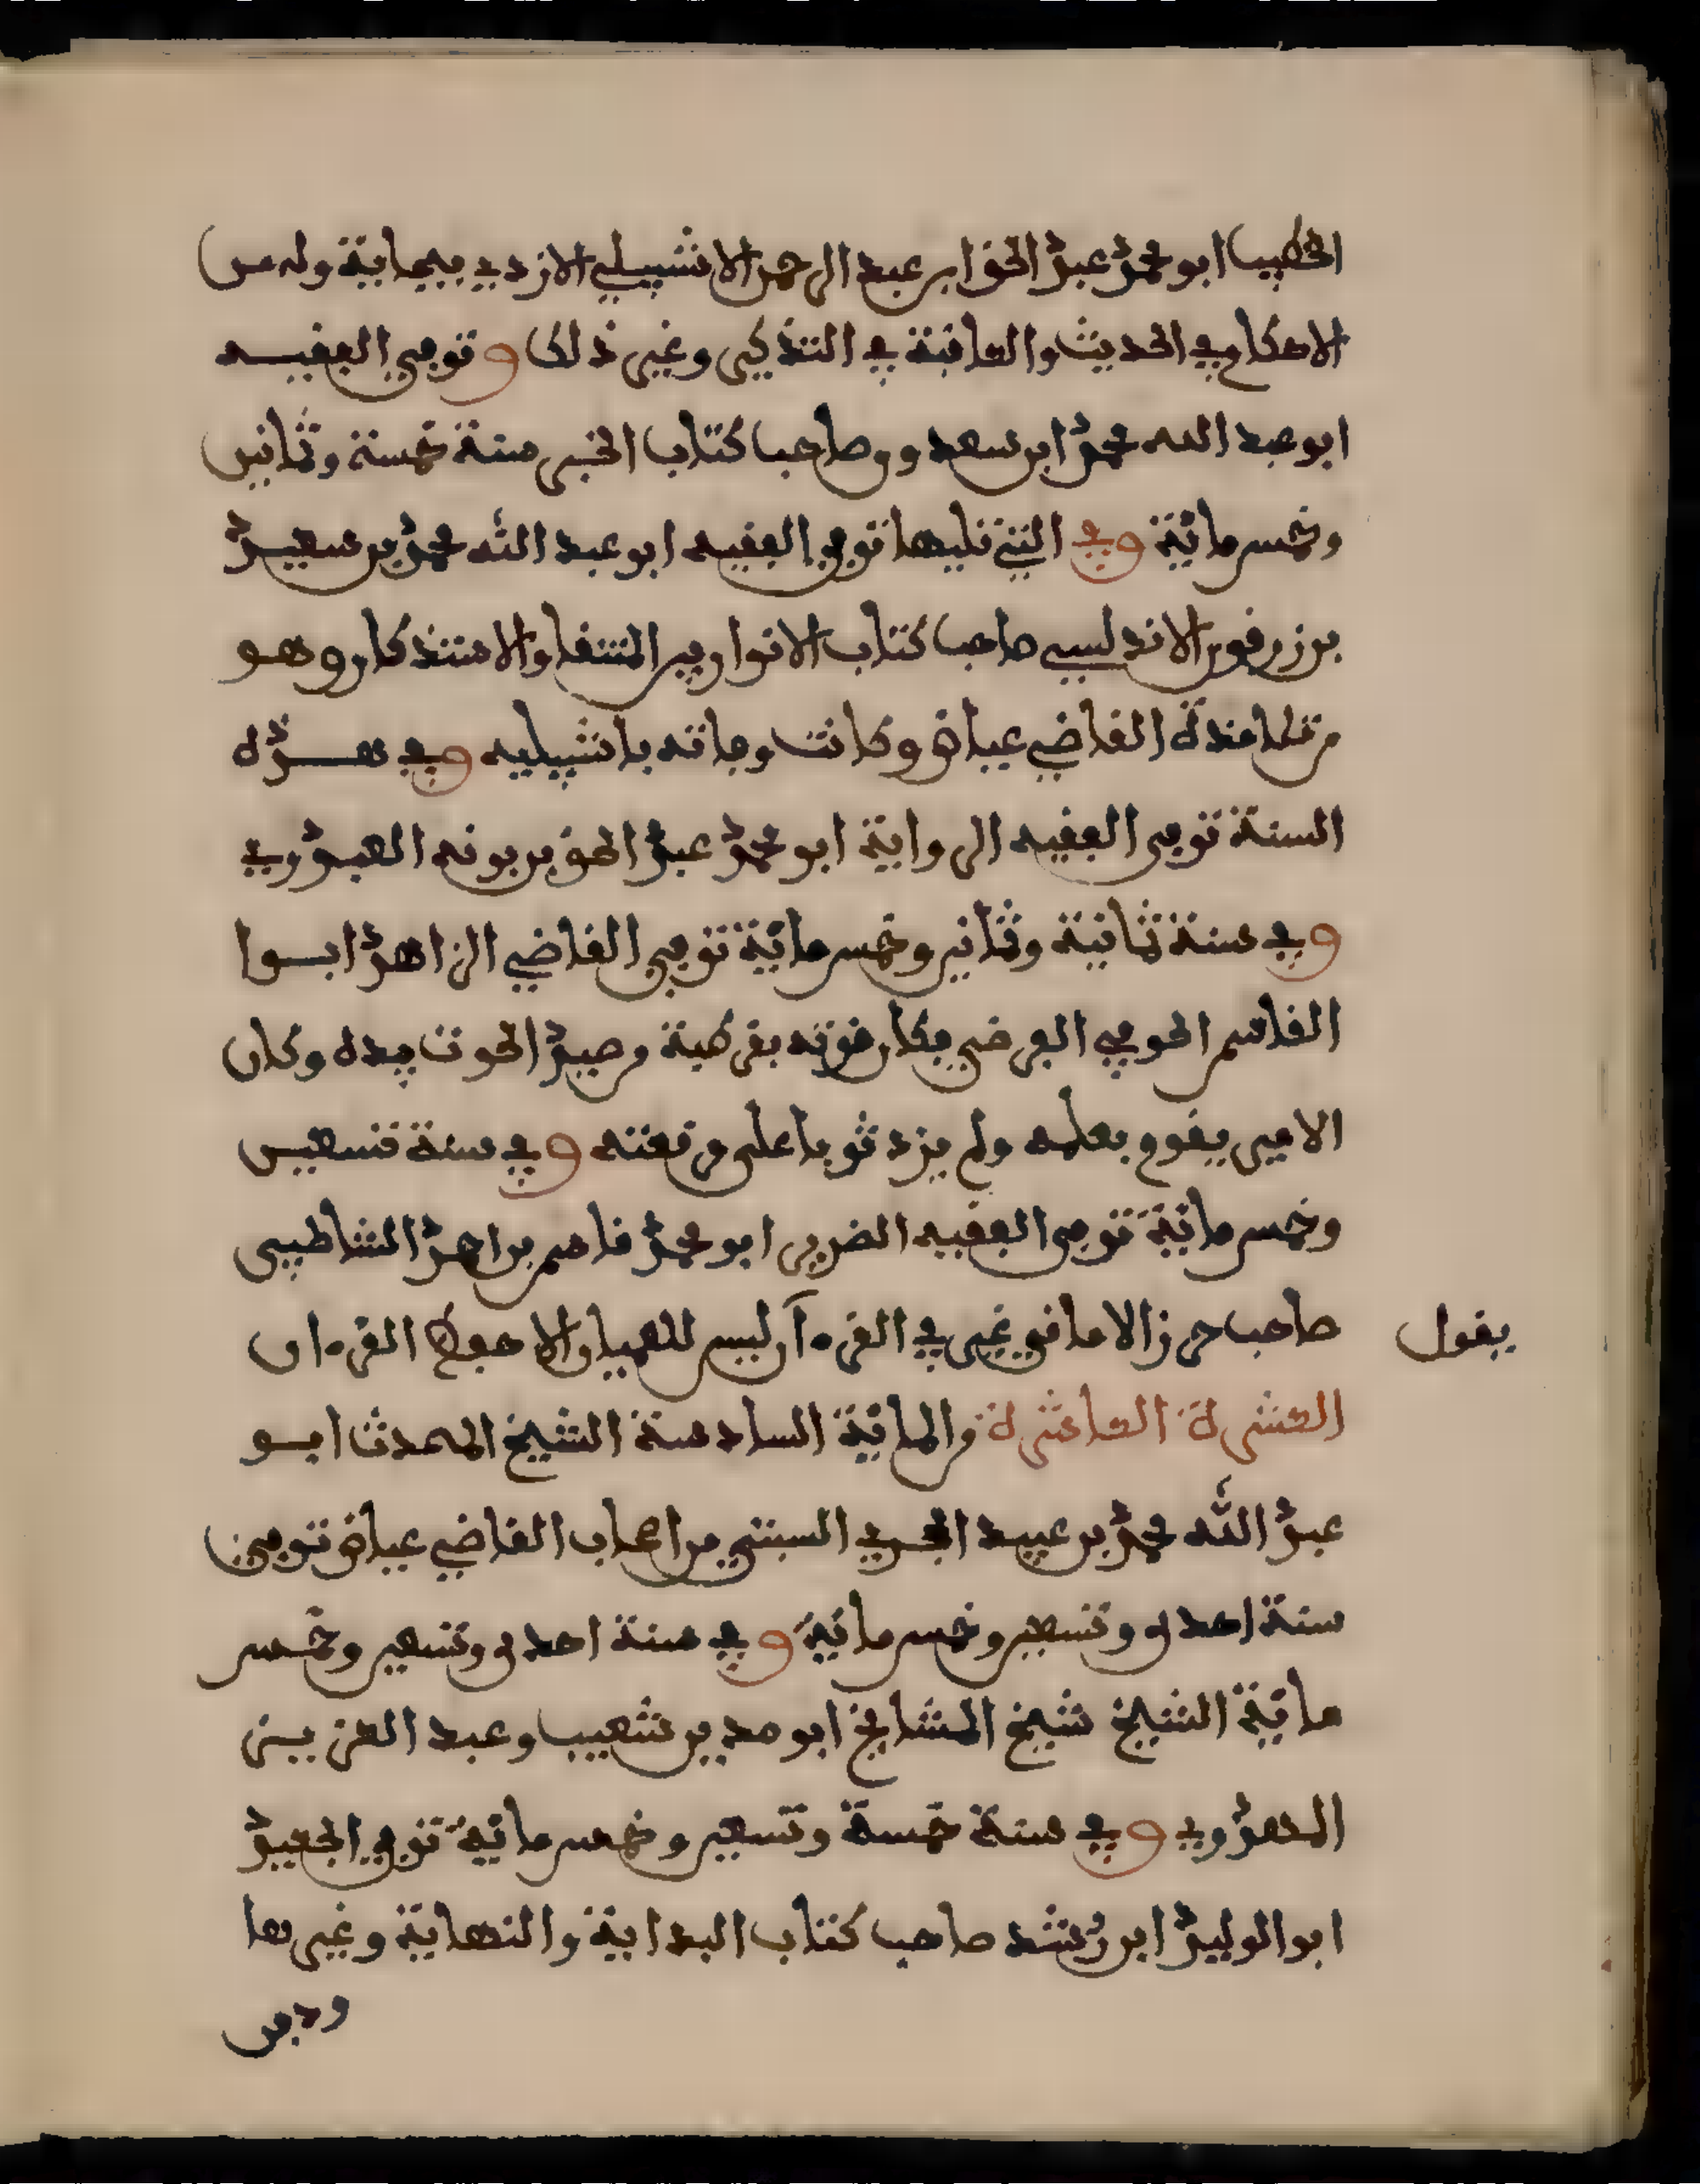 الخطيب ابو محمد عبد الحق ابن عبد الرحمن الاشبيلي الازدي ببجاية وله من
الاحكام في الحديث والعاقبة في التذكير وغير ذلك وتوفي الفقيه
ابو عبد الله محمد ابن سعد وو صاحب كتاب الخبر سنة خمسة وثمانين
وخمس مائة وفي التي تليها توفي الفقيه ابو عبد الله محمد بن سعيد
بن زرقون الاندلسي صاحب كتاب الانوار بين المنتقا والاستذكار وهو
من تلامذة القاضي عياض وكانت وفاته باشبيليه وفي هذه
السنة توفي الفقيه الراوية ابو محمد عبد الحق بن بونه العبدري
وفي سنة ثمانية وثمانين وخمس مائة توفي القاضي الزاهد ابوا
القاسم الحوفي الفرضي فكان قوته بقرطبة من صيد الحوت بيده وكان
الامير يقوم بعلمه ولم يزد ثوبا على من قعته وفي سنة تسعين
وخمس مائة توفي الفقيه الضرير ابو محمد قاسم بن احمد الشاطبي
صاحب حرز الاماني غير في القرءآن ليس للعميان الا حفظ القرءان
يقول
العشرة العاشرة من المائة السادسة الشيخ المحدث ابو
عبد الله محمد بن عبيد الحجري السبتي من اصحاب القاضي عياض توفي
سنة احدى وتسعين وخمس مائة وفي سنة احدى وتسعين وخمس
مائة الشيخ شيخ المشايخ ابو مدين شعيب وعبد العزيز
المهدوي وفي سنة خمسة وتسعين وخمس مائة توفي الحفيد
ابو الوليد ابن رشد صاحب كتاب البداية والنهاية وغيرها
ودفن